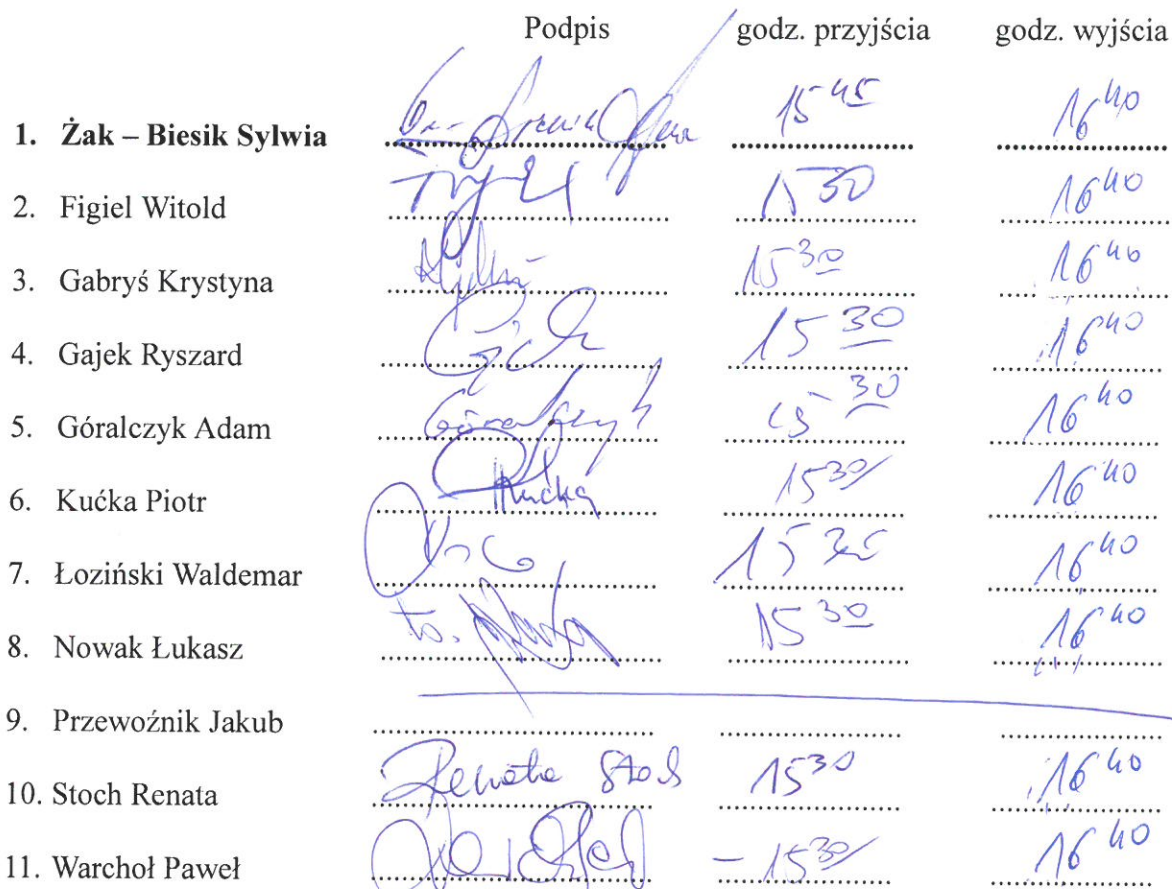 Podpis godz. przyjścia godz. wyjścia
1. Żak – Biesik Sylwia 15 45 16 40
2. Figiel Witold 15 30 16 40
3. Gabryś Krystyna 15 30 16 40
4. Gajek Ryszard 15 30 16 40
5. Góralczyk Adam Góralczyk 15 30 16 40
6. Kućka Piotr Kućka 15 30 16 40
7. Łoziński Waldemar 15 16 40
8. Nowak Łukasz Ło. 15 30 16 40
9. Przewoźnik Jakub
10. Stoch Renata Renata Stoch 15 30 16 40
11. Warchoł Paweł – 15 30 16 40